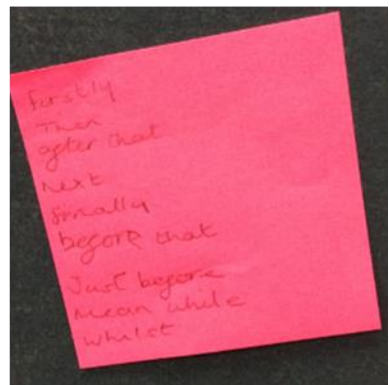 firstly
Then
after that
next
finally
before that
Just before
mean while
whilst